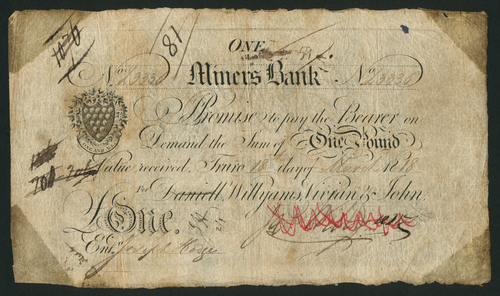 ONE
81
Miners Bank
No. 3336 No. 3336
I Promise to pay the Bearer on
Demand the Sum of One Pound
Value received. Truro 18 day of March 1818
For Daniell, Willyams, Vivian & John
£ One.
ONE AND ALL
Entd. Joseph